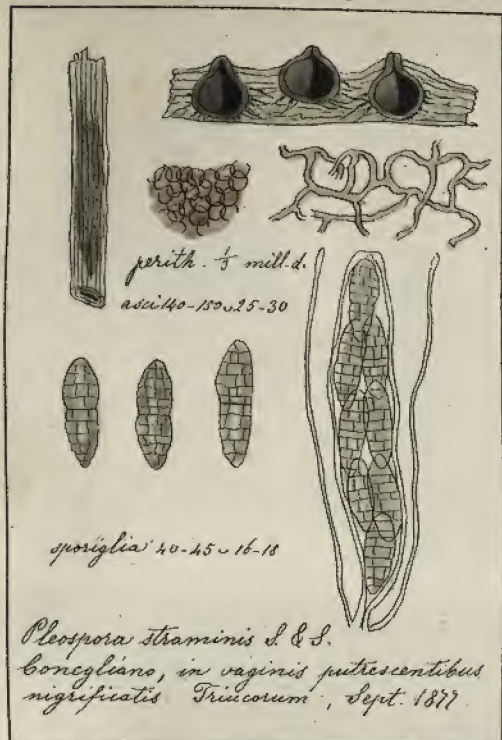 perith. 1/3 mill. d.
asci 140-150 ⌣ 25-30
sporiglia 40-45 ⌣ 16-18
Pleospora straminis S. & S.
Conegliano, in vaginis putrescentibus
nigrificatis Triticorum, Sept. 1877